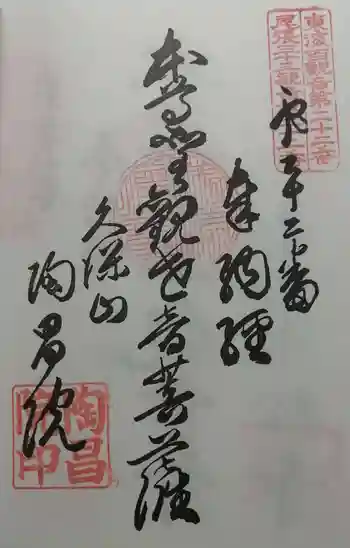 東海百觀音第二十二番
尾張三十三觀音第二十二番
二十二番
奉納經
本尊聖觀世音菩薩
久保山
陶昌院
陶昌院印